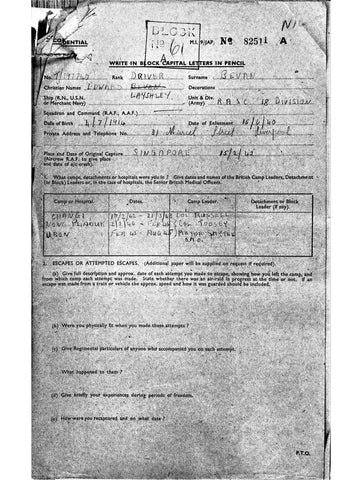 BLOCK
CONFIDENTIAL No 61 M.I.9/JAP. No 82511 A
A
WRITE IN BLOCK CAPITAL LETTERS IN PENCIL
No. Rank DRIVER Surname BEVAN
Christian Names EDWARD Decorations
Ship (R.N., U.S.N. or Merchant Navy) Unit & Div. (Army) R.A.S.C. 18 DIVISION
Squadron and Command (R.A.F., A.A.F.)
Date of Birth /7/1916 Date of Enlistment 15/6/40
Private Address and Telephone No. Street Liverpool
Place and Date of Original Capture SINGAPORE 15/2/42
(Aircrew R.A.F. to give place and date of a/c crash).
1. What camps, detachments or hospitals were you in? Give dates and names of the British Camp Leaders, Detachment (or Block) Leaders or, in the case of hospitals, the Senior British Medical Officers.
Camp or Hospital. Dates. Camp Leader. Detachment or Block Leader (if any).
CHANGI COL
NONG PLADUK COL TOOSEY
UBON FEB 45 - AUG 45 MAJOR
2. ESCAPES OR ATTEMPTED ESCAPES. (Additional paper will be supplied on request if required).
(a) Give full description and approx. date of each attempt you made to escape, showing how you left the camp, and from which camp each attempt was made. State whether there was an air-raid in progress at the time or not. If an escape was made from a train or vehicle the approx. speed and how it was guarded should be included.
(b) Were you physically fit when you made these attempts?
(c) Give Regimental particulars of anyone who accompanied you on each attempt.
What happened to them?
(d) Give briefly your experiences during periods of freedom.
(e) How were you recaptured and on what date?
P.T.O.